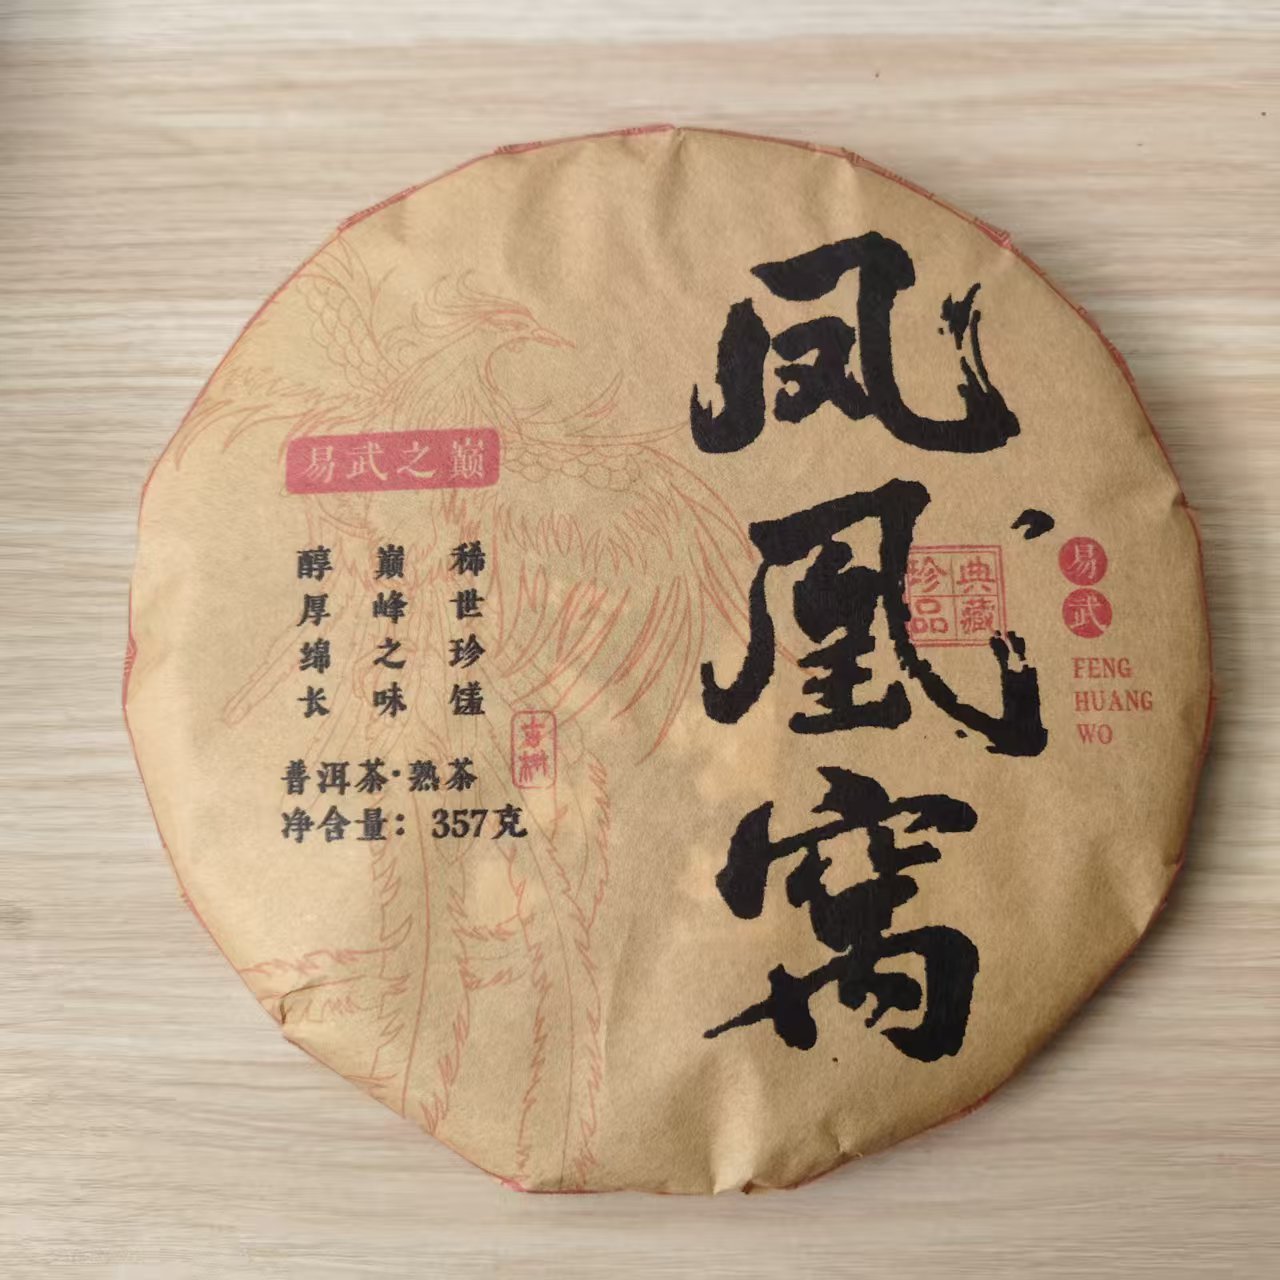 凤凰窝
易武
FENG
HUANG
WO
典藏
珍品
易武之巅
稀世珍馐
巅峰之味
醇厚绵长
普洱茶·熟茶
净含量：357克